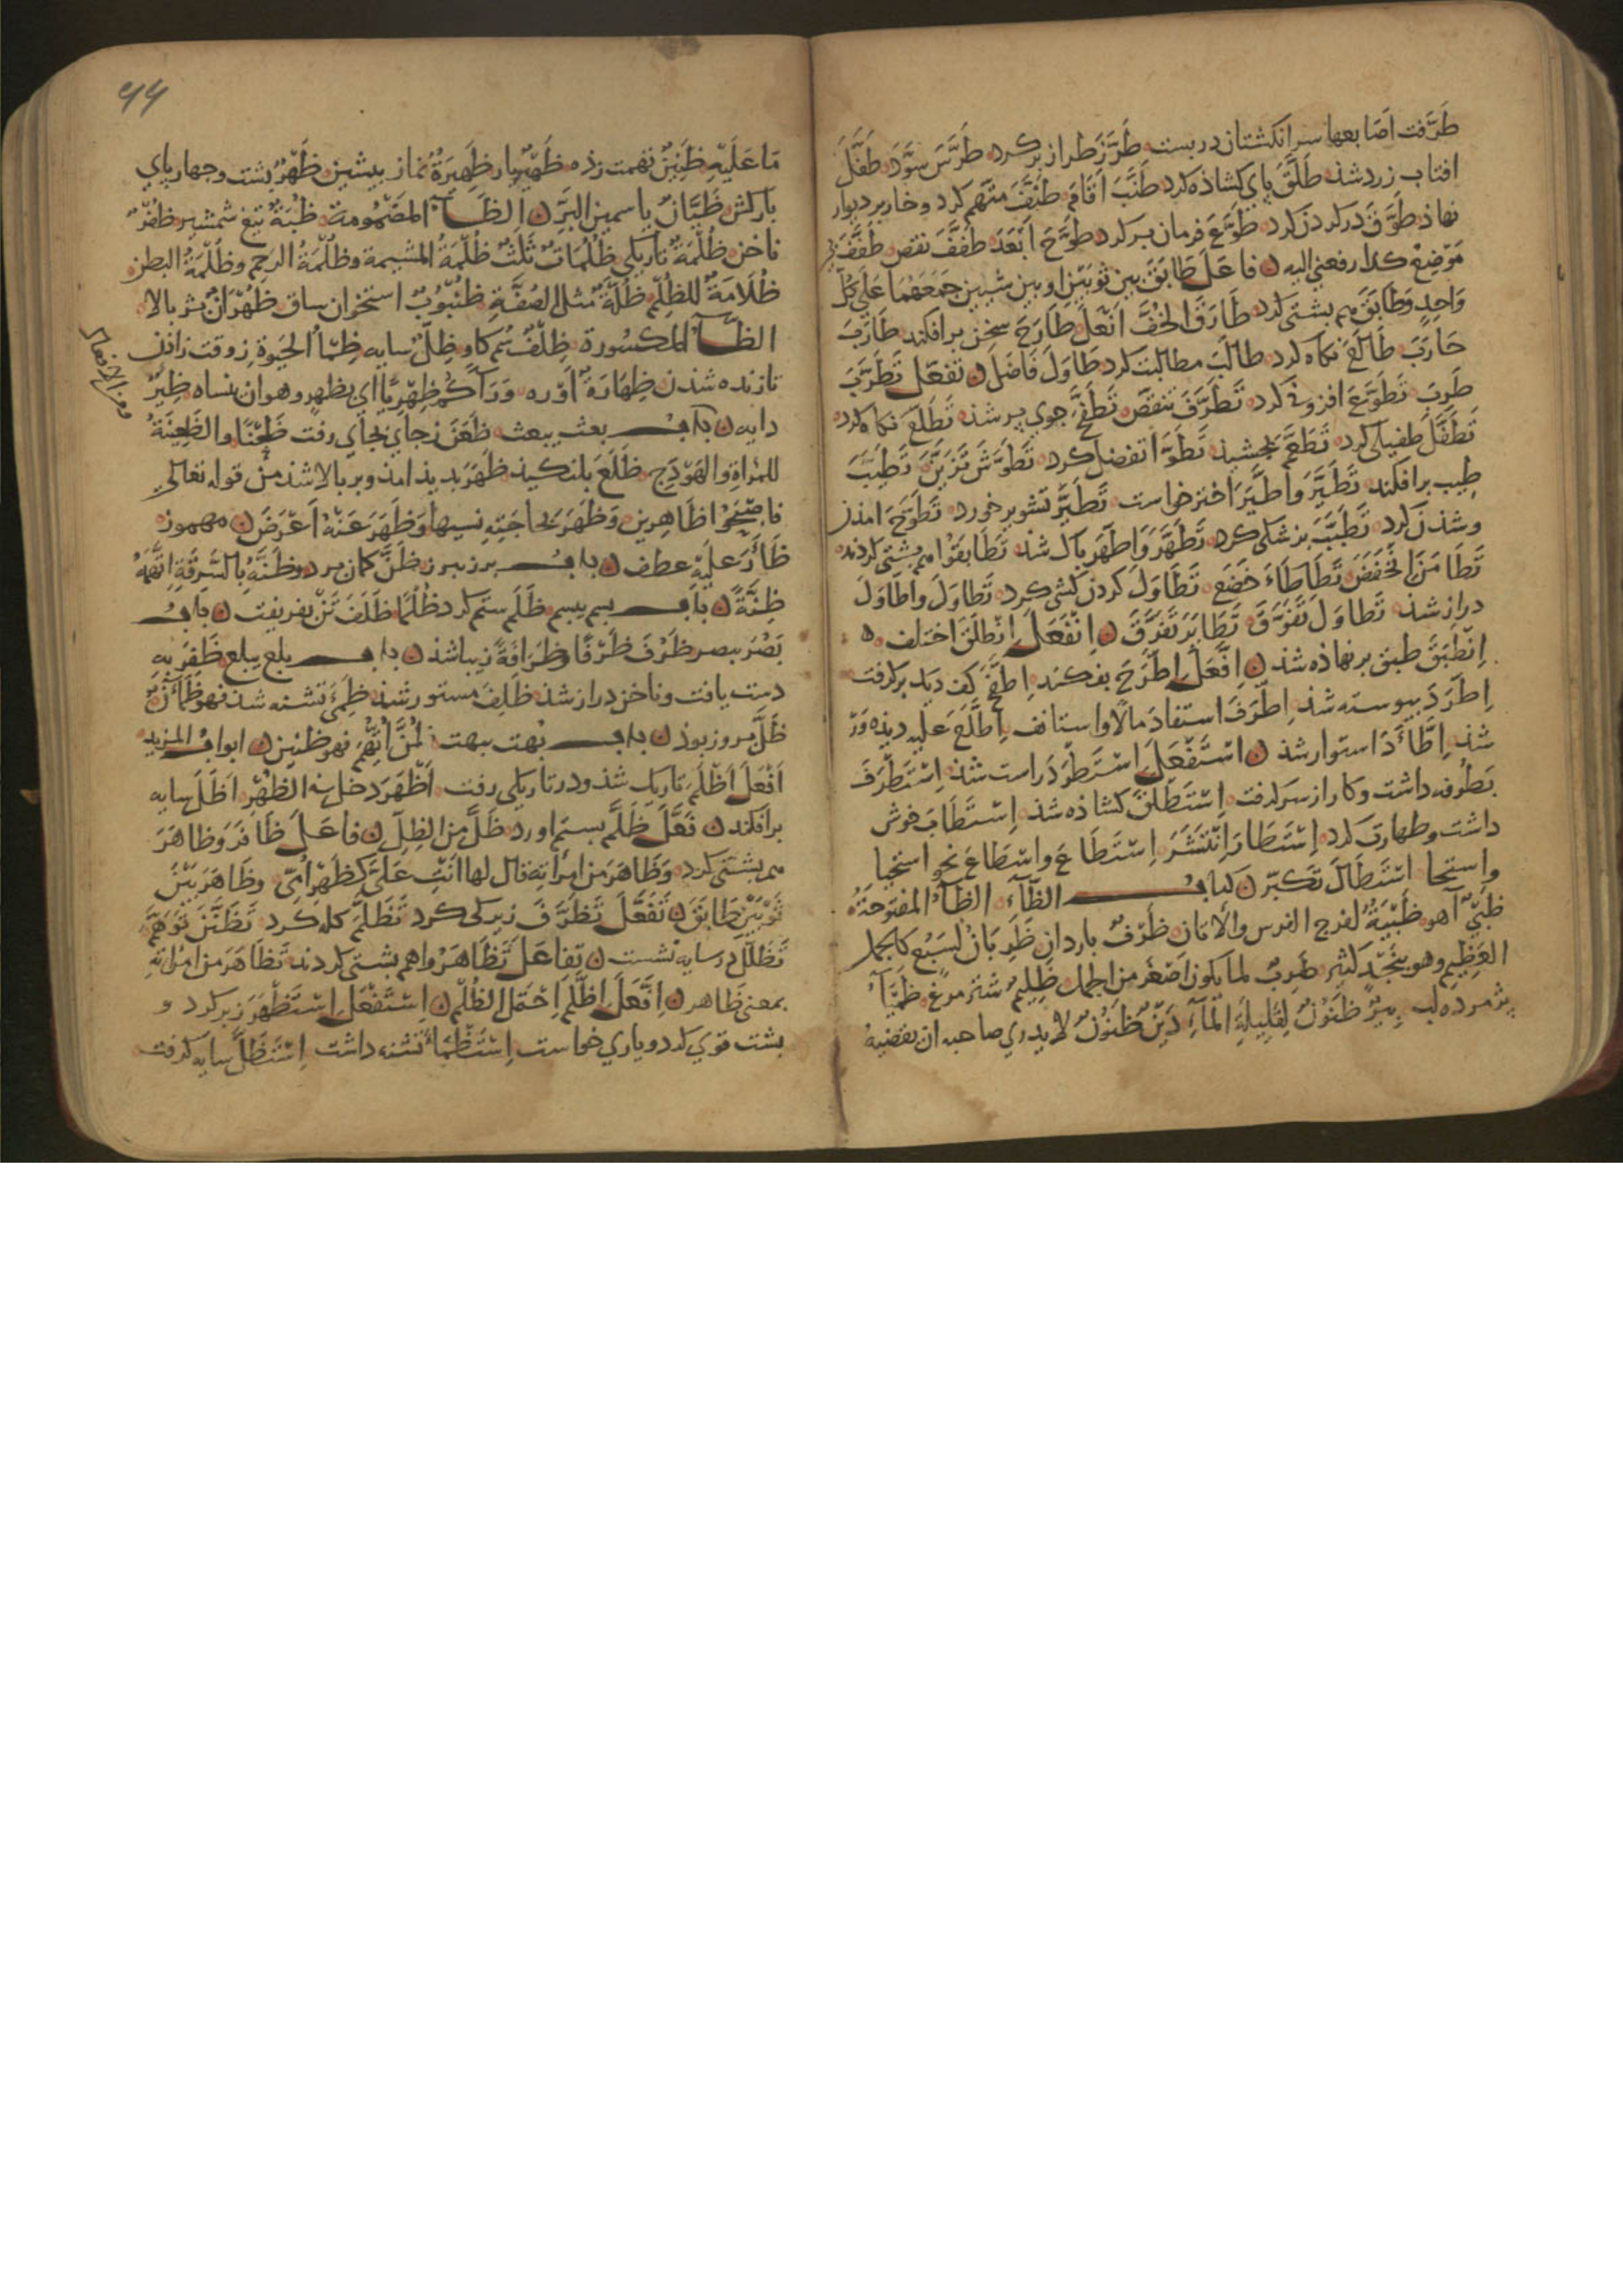 طَرَّفت اصَابعها سر انكشتان در بست طَرَّزَ طراز بر كرد طَرَّسَ سَوَّدَ طَفَّلَ
افتاب زرد شذ طَلَّقَ پاي كشاذه كرد طَنَّبَ اَقَامَ طَنَّفَ متهم كرد وخار بر ديوار
نهاذ طَوَّقَ در كردن كرد طَوَّعَ فرمان بر كرد طَوَّحَ اَبْعَدَ طَفَّفَ نقص طَفَّفَ
مَوْضِعُ كذا رفعني اليه فَاعَلَ طَابَقَ بين ثوبَيْنِ او بين شيئين جَمَعَهُمَا عَلَي
وَاحِدٍ وَطَابَقَ هم بشتي كرد طَارَقَ الخُفَّ اَنْعَلَ طَارَحَ سخن برافكند طَارَبَ
حَارَبَ طَالَعَ نكاه كرد طَالَبَ مطالبت كرد طَاوَلَ فَاضَلَ تَفَعَّلَ تَطَرَّبَ
طَرِبَ تَطَوَّعَ افزوني كرد تَطَرَّفَ تنقص تَطَفَّحَ جوي پر شذ تَطَلَّعَ نكاه كرد
تَطَفَّلَ طفيلي كرد تَطَعَّمَ بجشيذ تَطَوَّلَ تفضل كرد تَطَوَّسَ تَزَيَّنَ تَطَيَّبَ
طِيب برافكند تَطَيَّرَ وَاطَّيَّرَ اختر خواست تَطَيَّرَ تشوير خورد تَطَوَّحَ امذن
وشذن كرد تَطَبَّبَ بزشكي كرد تَطَهَّرَ وَاطَّهَّرَ پاك شذ تَطَابَقُوا هم پشتي كردند
تَطَامَنَ انخَفَضَ تَطَاطَاءَ خَضَعَ تَطَاوَلَ كردن كشي كرد تَطَاوَلَ وَاطَاوَلَ
دراز شذ تَطَاوَلَ تَفَوَّقَ تَطَايَرَ تَفَرَّقَ اِنْفَعَلَ اِنْطَلَقَ اختلف
اِنْطَبَقَ طبق بر نهاذه شذ اِفْتَعَلَ اِطَّرَحَ بفكند اِطَّفَحَ كف ديك بركرفت
اِطَّرَدَ پيوسته شذ اِطَّرَفَ استفادَ مالًا واستانف اِطَّلَعَ عليه ديذه وَرْ
شذ اِطَّأَدَ استوار شذ اسْتَفْعَلَ اِسْتَطْرَدَ راست شذ اِسْتَطْرَفَ
بَطُرفه داشت وكار از سر كرفت اِسْتَطْلَقَ كشاذه شذ اِسْتَطَابَ خوش
داشت وطهارت كرد اِسْتَطَارَ اِنْتَشَرَ اِسْتَطَاعَ واسْطَاعَ استحيا
واستحا اسْتَطَالَ تكبّر كتاب الظَّآءِ الظَّآءُ المفتوحَةُ
ظَبْيٌ آهو ظَبْيَةٌ لفرج الفرس والاتان ظَرْفٌ باردان ظَرِبَانٌ لسَبُعٍ كالجمل
العَظِيم وهو بنَجْدٍ كثير ظَرِبٌ لما يكون اصْغَرَ من الجبل ظَلِيمٌ شتر مرغ ظَمْيَآءُ
پژمرده لب بِيرٌ ظَنُونٌ لِقَلِيلَةِ المَآءِ دَيْنٌ ظَنُونٌ لا يدري صاحبه ان يقضيهُ
۹۹
مَا عَلَيْهِ ظَنِينٌ تهمت زذه ظَهِيرٌ يار ظَهِيرَةٌ نماز پيشين ظَهْرٌ پشت وجهارپاي
باركش ظَيَّانٌ ياسمين البَرِّ الظَّآءُ المضْمُومة ظُبَةٌ تيغ شمشير ظُفْرٌ
ناخن ظُلْمَةٌ تاريكي ظُلُمَاتٌ ثَلٰثٌ ظُلْمَةُ المشيمة وظُلْمَةُ الرحِمِ وظُلْمَةُ البطن
ظُلَامَةٌ للظُلْمِ ظُلَّةٌ مثل الصُفَّةِ ظُنْبُوبٌ استخوان ساق ظُهْرَانٌ پر بالا
الظّآءُ المكسورة ظِلْفٌ سُم كاو ظِلٌّ سايه ظِمْأُ الحَيٰوةِ ز وقت زاذن
تا زنده شذن ظِهَارَةٌ اَوْرَه وَرَآكُم ظِهْرِيًّا اي بظهرٍ وهو ان ينساه ظِئْرٌ
دايه باب بعث يبعث ظَعَنَ ز جاي بجاي رفت ظَعْنًا والظَعِينَةُ
للمراةِ والهَوْدَجِ ظَلَعَ بلنكيذ ظَهَرَ پديذ امذ وبر بالا شذ من قوله تعالي
فاصْبَحُوا ظَاهِرِين وَظَهَرَ بحَاجَتِهِ نسيها وَظَهَرَ عَنْهُ اَعْرَضَ مهموز
ظَأَرَ عليْهِ عطف باب برز يبرز ظَنَّ كمان برد وظَنَّهُ بالسَّرِقَةِ اتَّهَمَهُ
ظِنَّةً باب بسم يبسم ظَلَمَ ستم كرد ظُلْمًا ظَلَفَ تَنْ بفريفت باب
بَصُرَ يبصر ظَرُفَ ظَرْفًا وظَرَافَةً زيبا شذ باب بلع يبلع ظَفِرَ به
دست يافت وناخن دراز شذ ظَلِفَ مستور شذ ظَمِئَ تشنه شذ فهو ظَمْآنٌ
ظَلَّ بروز بوذ باب بُهت يبهت ظُنَّ اتُّهِمَ فهو ظنين ابواب المزيد
اَفْعَلَ اَظْلَمَ تاريك شذ ودر تاريكي رفت اَظْهَرَ دخل في الظُهْرِ اَظَلَّ سايه
برافكند فَعَّلَ ظَلَّمَ بستم اورد ظَلَّ من الظِلّ فَاعَلَ ظَافَرَ وَظاهَرَ
هم پشتي كرد وَظَاهَرَ من امرأتِهِ قال لها اَنْتِ عَلَيَّ كظَهْرِ اُمّي وظَاهَرَ بَيْنَ
ثَوْبَيْنِ طَابَقَ تَفَعَّلَ تَظَرَّفَ زيركي كرد تَظَلَّمَ كله كرد تَظَنَّنَ تَوَهَّمَ
تَظَلَّلَ در سايه نشست تَفَاعَلَ تَظَاهَرُوا هم پشتي كردند تَظَاهَرَ من امراتِهِ
بمعني ظَاهر اِفْتَعَلَ اِظَّلَمَ اِحْتَمَلَ الظُلْمَ اِسْتَفْعَلَ اِسْتَظْهَرَ زبر كرد و
پشت قوي كرد وياري خواست اِسْتَظْمَأَ تشنه داشت اِسْتَظَلَّ سايه كرفت
ومن الافعال